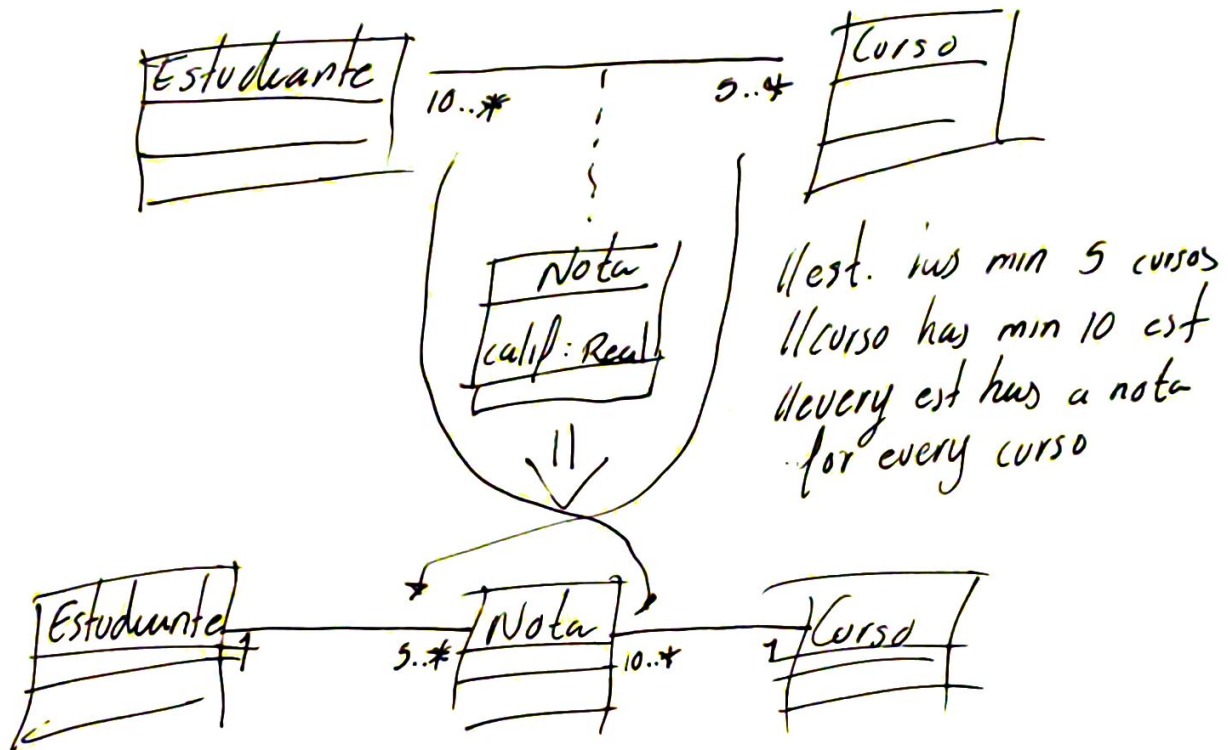 Estudiante
Curso
10..*
5..*
Nota
calif: Real
//est. has min 5 cursos
//curso has min 10 est
//every est has a nota
for every curso
Estudiante
1
5..*
Nota
10..*
1
Curso